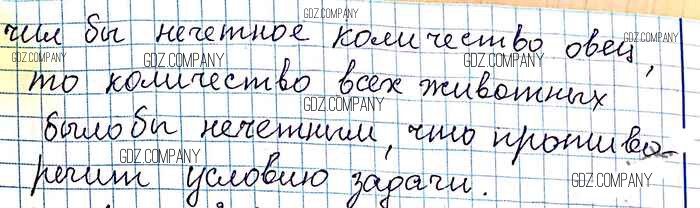 чил бы нечетное количество овец,
то количество всех животных
было бы нечетним, что противо-
речит условию задачи.
GDZ.COMPANY
GDZ.COMPANY
GDZ.COMPANY
GDZ.COMPANY
GDZ.COMPANY
GDZ.COMPANY
GDZ.COMPANY
GDZ.COMPANY
GDZ.COMPANY